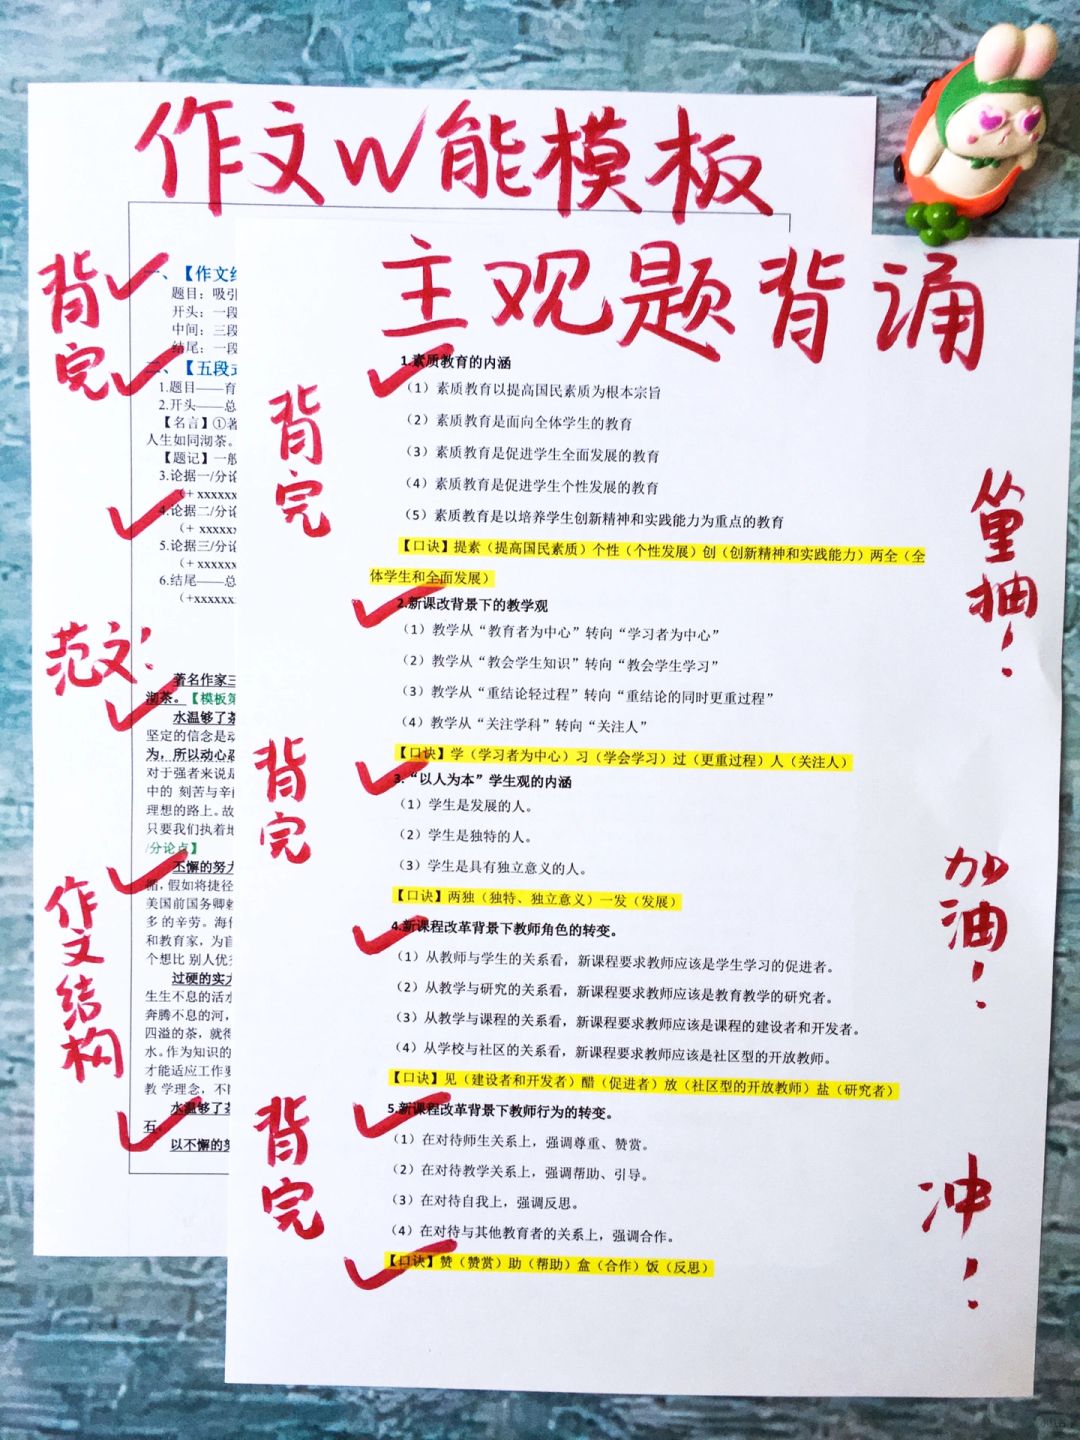 作文w能模板
背完
一、【作文结
题目：吸引
开头：一段
中间：三段
结尾：一段
二、【五段式
1.题目——育
2.开头——总
【名言】①著
人生如同沏茶。
【题记】一般
3.论据一/分论
（+ xxxxxx
4.论据二/分论
（+ xxxxxx
5.论据三/分论
（+ xxxxxx
6.结尾——总
（+xxxxxx
范文：
著名作家三
沏茶。【模板第
水温够了茶
坚定的信念是动
为，所以动心忍
对于强者来说是
中的 刻苦与辛酸
理想的路上。故
只要我们执着地
/分论点】
不懈的努力
循，假如将捷径
美国前国务卿赖
多的辛劳。海伦
和教育家，为盲
个想比 别人优秀
作文结构
过硬的实力
生生不息的活水
奔腾不息的河，
四溢的茶，就得
水。作为知识的
才能适应工作要
教 学理念，不断
水温够了茶
石。
以不懈的努
主观题背诵
1.素质教育的内涵
（1）素质教育以提高国民素质为根本宗旨
（2）素质教育是面向全体学生的教育
（3）素质教育是促进学生全面发展的教育
（4）素质教育是促进学生个性发展的教育
（5）素质教育是以培养学生创新精神和实践能力为重点的教育
【口诀】提素（提高国民素质）个性（个性发展）创（创新精神和实践能力）两全（全
体学生和全面发展）
背完
2.新课改背景下的教学观
（1）教学从“教育者为中心”转向“学习者为中心”
（2）教学从“教会学生知识”转向“教会学生学习”
（3）教学从“重结论轻过程”转向“重结论的同时更重过程”
（4）教学从“关注学科”转向“关注人”
【口诀】学（学习者为中心）习（学会学习）过（更重过程）人（关注人）
3.“以人为本”学生观的内涵
（1）学生是发展的人。
（2）学生是独特的人。
（3）学生是具有独立意义的人。
【口诀】两独（独特、独立意义）一发（发展）
背完
4.新课程改革背景下教师角色的转变。
（1）从教师与学生的关系看，新课程要求教师应该是学生学习的促进者。
（2）从教学与研究的关系看，新课程要求教师应该是教育教学的研究者。
（3）从教学与课程的关系看，新课程要求教师应该是课程的建设者和开发者。
（4）从学校与社区的关系看，新课程要求教师应该是社区型的开放教师。
【口诀】见（建设者和开发者）醋（促进者）放（社区型的开放教师）盐（研究者）
5.新课程改革背景下教师行为的转变。
（1）在对待师生关系上，强调尊重、赞赏。
（2）在对待教学关系上，强调帮助、引导。
（3）在对待自我上，强调反思。
（4）在对待与其他教育者的关系上，强调合作。
【口诀】赞（赞赏）助（帮助）盒（合作）饭（反思）
背完
抽！
加油！
冲！